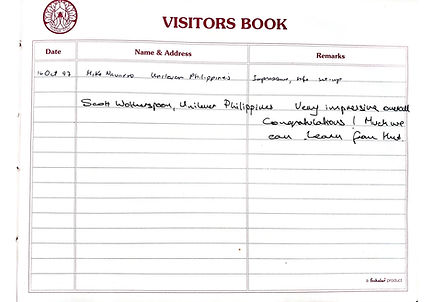 VISITORS BOOK
Date Name & Address Remarks
Oct 97 Mike Navarro Unilever Philippines Impressive, set-up
Scott Wotherspoon, Unilever Philippines Very impressive overall
Congratulations! Much we
can learn from this.
a product